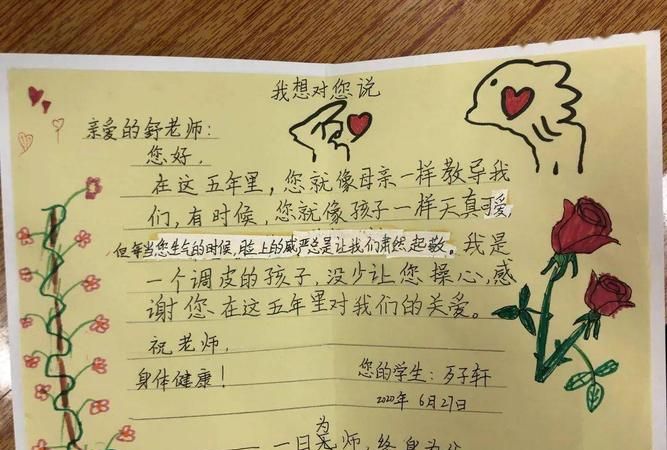 我想对您说
亲爱的舒老师:
您好,
在这五年里,您就像母亲一样教导我
们,有时候,您就像孩子一样天真可爱,
但每当您生气的时候,脸上的威严总是让我们肃然起敬。我是
一个调皮的孩子,没少让您操心,感
谢您在这五年里对我们的关爱。
祝老师,
身体健康!
您的学生:歹子轩
2020年 6月27日
为
一日老师,终身为父